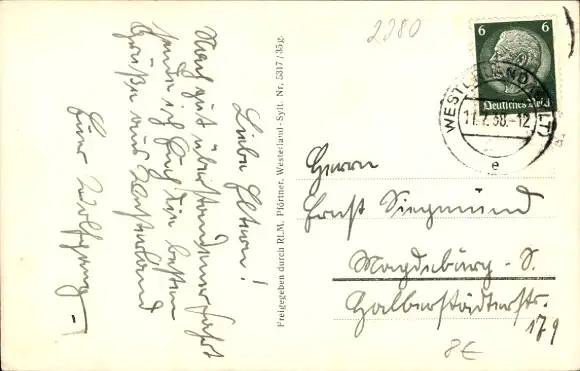 2280
Liebe Eltern!
Nach gut überstandener Fahrt
sende ich Euch die besten
Grüße aus Westerland
Euer Wolfgang
Freigegeben durch RLM. Pförtner, Westerland-Sylt. Nr. 5317/35g.
6 6
Deutsches Reich
WESTERLAND (SYLT)
11.7.38.-12
e
Herrn
Ernst Siegmund
Magdeburg-S.
Halberstädterstr.
179
8€